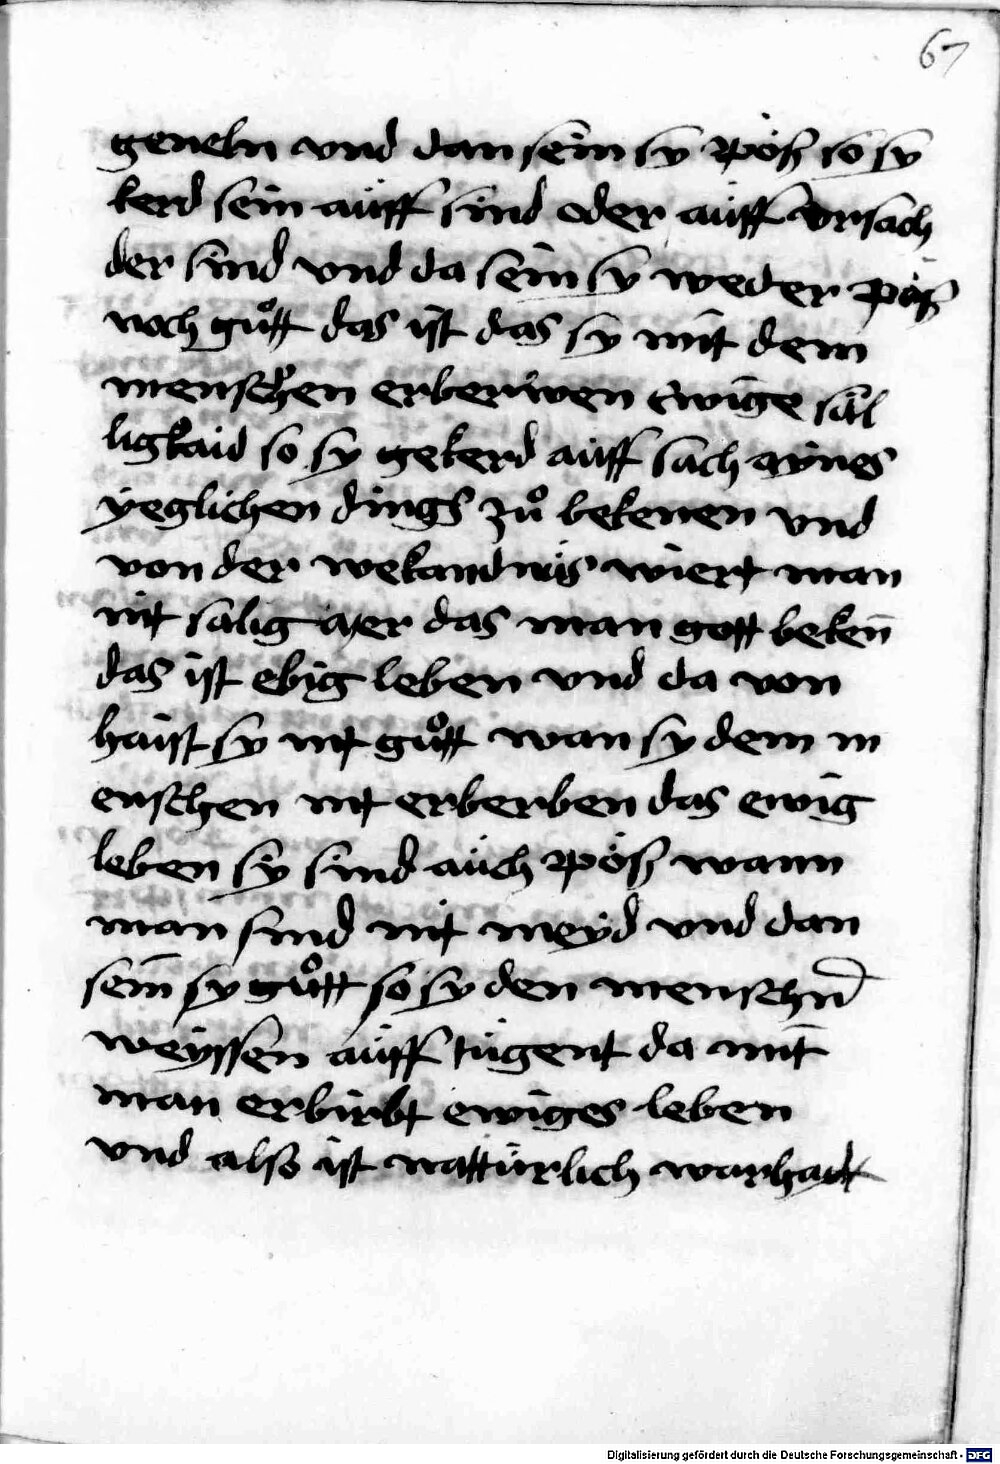 67
geneln vnd dan sein sy pöß so sy
kerd sein aüff sind oder aüff vrsach
der sind vnd da sein sy weder pöß
noch gůtt das ist das sy mit dem
menschen erberwen ewige säl
ligkaid so sy gekerd aüff sach aynes
yeglichen dings zů bekenen vnd
von der wekandnis wiert man
nit salig aber das man gott beken̄
das ist ebig leben vnd da von
haist sy nit gůtt wan sy dem m
enschen nit erberben das ewig
leben sy sind aüch pöß wann
man sind nit meyd vnd dan
sein sy gůtt so sy den menschn
weyssen aüff tügent da mit
man erbirbt ewiges leben
vnd also ist nattürlich warhaitt
Digitalisierung gefördert durch die Deutsche Forschungsgemeinschaft - DFG